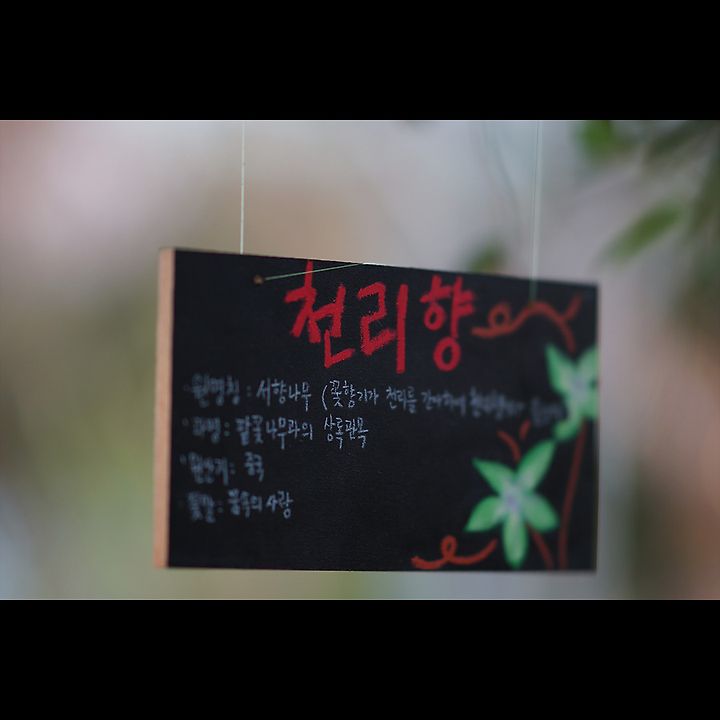 천리향
· 원명칭 : 서향나무 (꽃향기가 천리를 간다하여
· 과명 : 팥꽃나무과의 상록관목
· 원산지 : 중국
· 꽃말 : 사랑